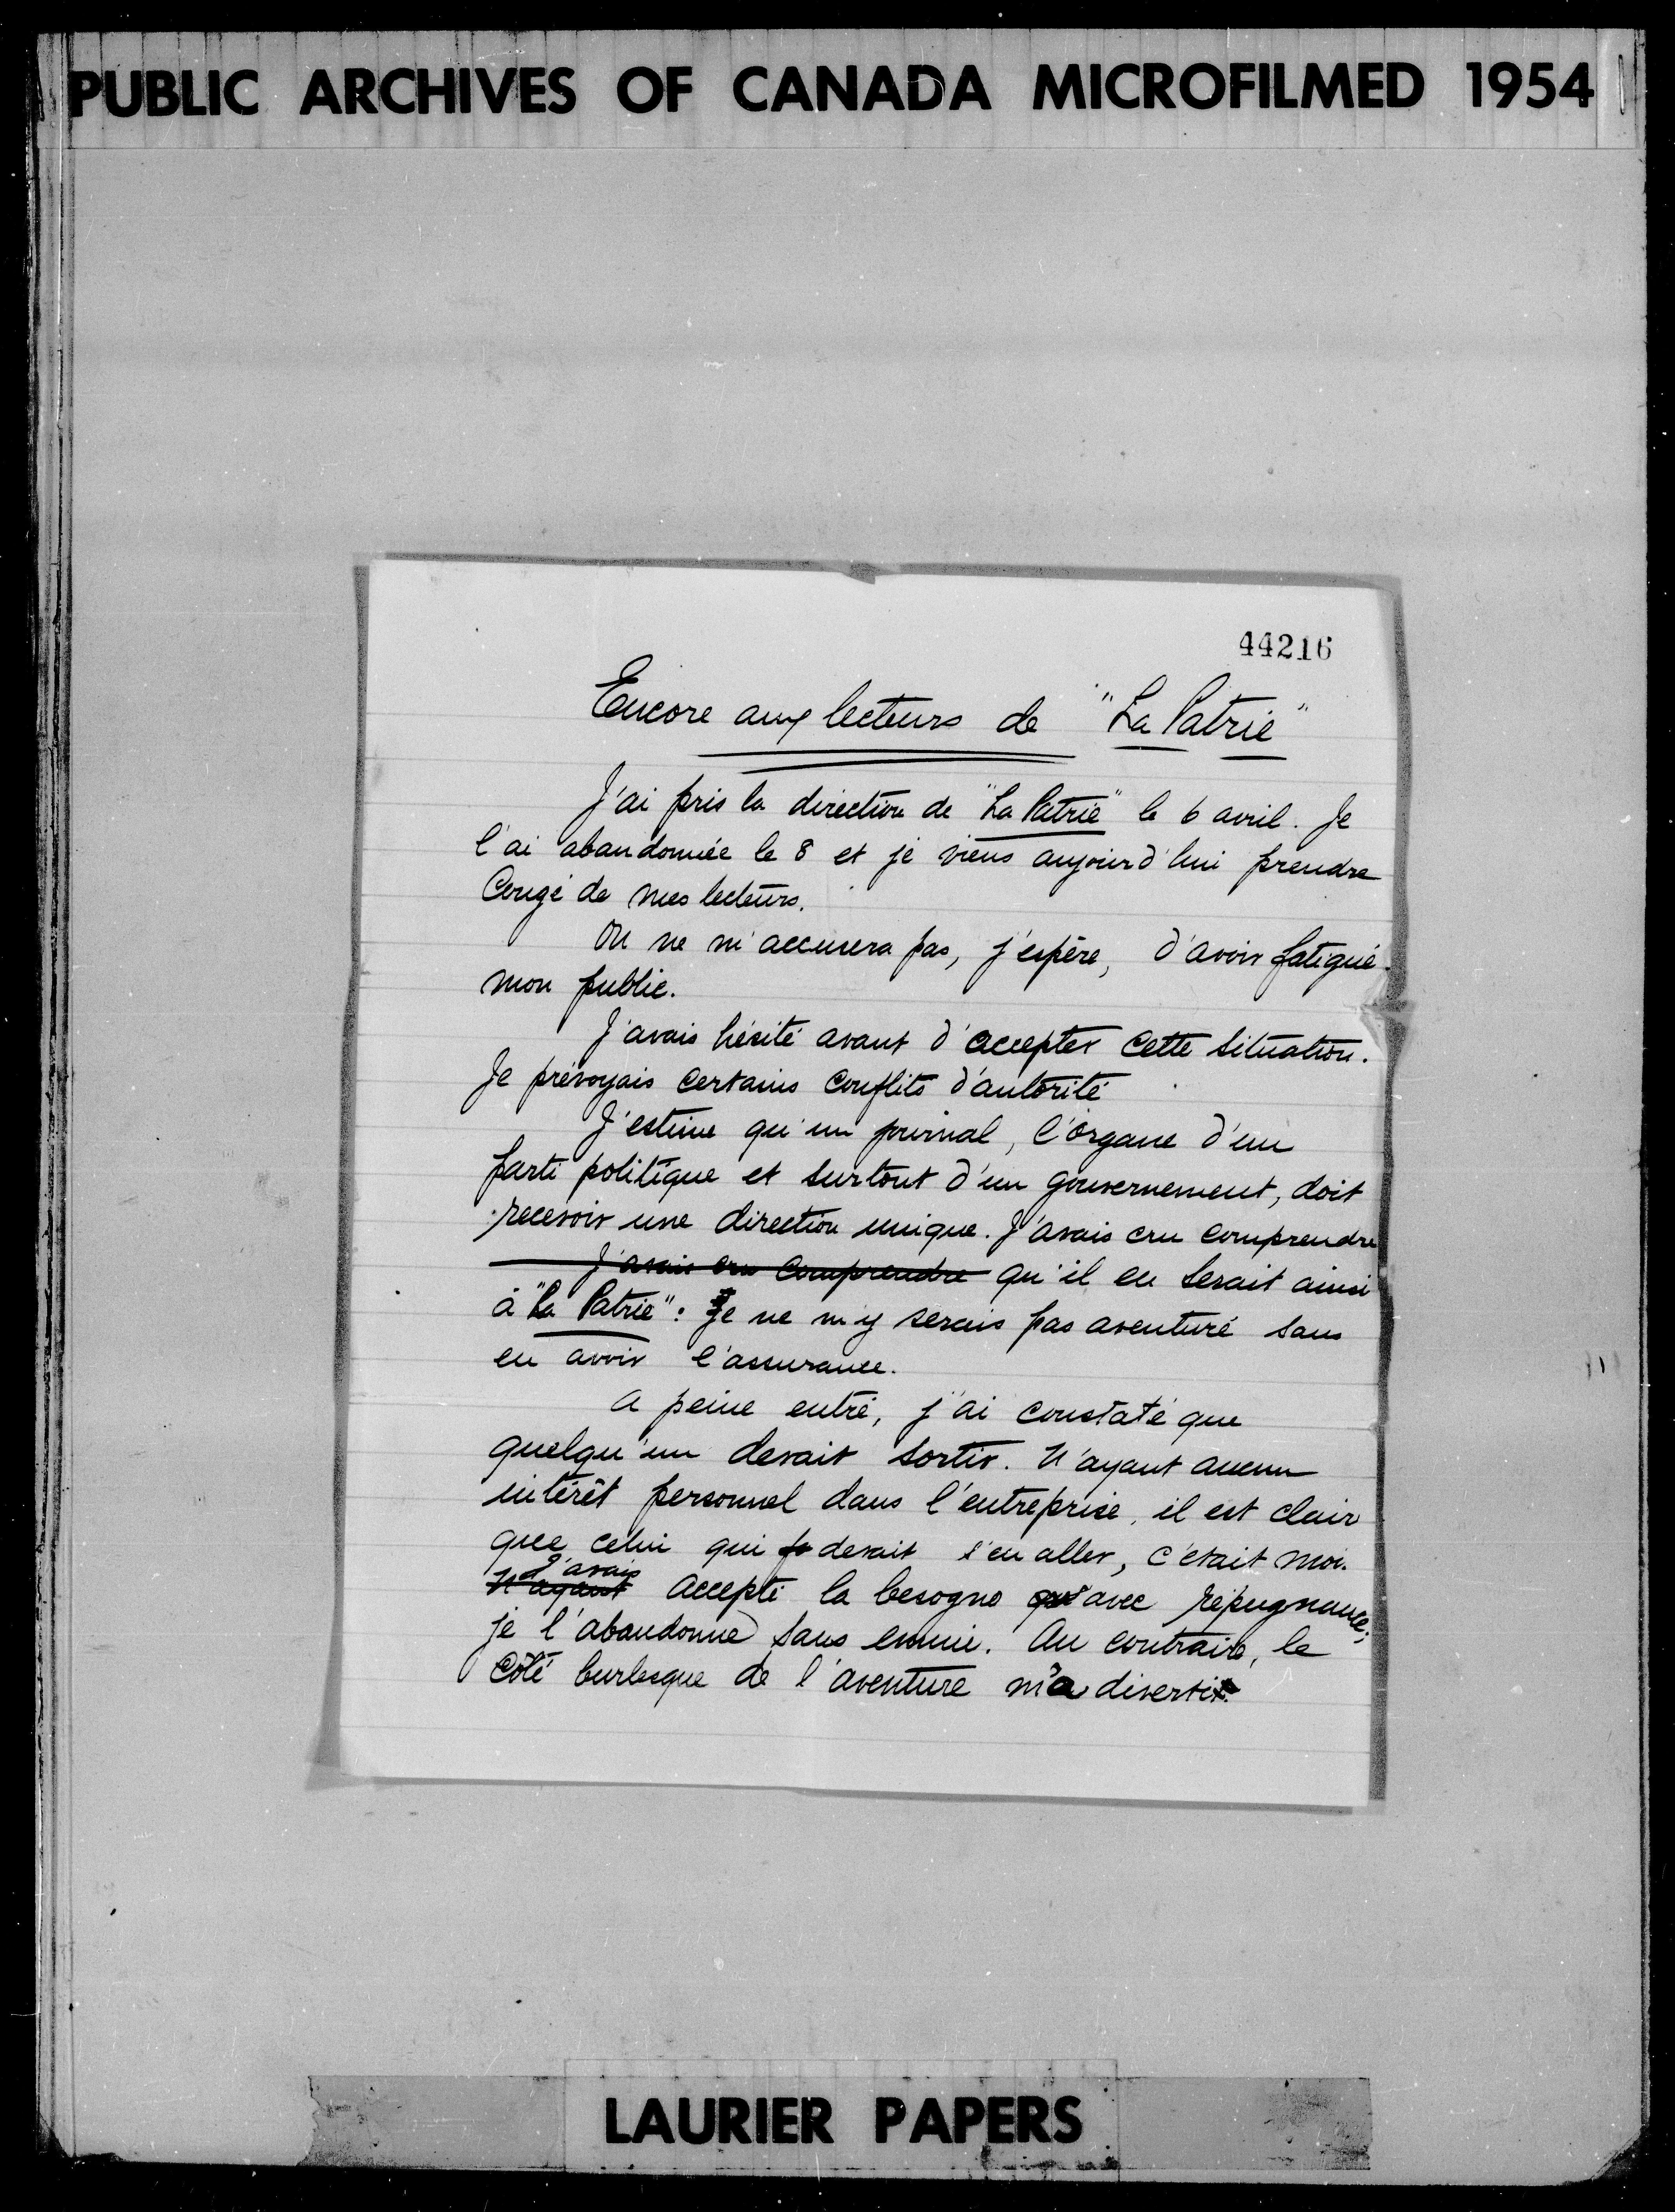 PUBLIC ARCHIVES OF CANADA MICROFILMED 1954
44216
Encore aux lecteurs de "La Patrie"
J'ai pris la direction de "La Patrie" le 6 avril. Je
l'ai abandonnée le 8 et je viens aujourd'hui prendre
Congé de mes lecteurs.
On ne m'accusera pas, j'espère, d'avoir fatigué
mon public.
J'avais hésité avant d'accepter cette situation.
Je prévoyais certains conflits d'autorité
J'estime qu'un journal, l'organe d'un
parti politique et surtout d'un gouvernement, doit
recevoir une direction unique. J'avais cru comprendre
J'avais cru comprendre qu'il en serait ainsi
à "La Patrie": Je ne m'y serais pas aventuré sans
en avoir l'assurance.
A peine entré, j'ai constaté que
quelqu'un devait sortir. N'ayant aucun
intérêt personnel dans l'entreprise, il est clair
que celui qui devait s'en aller, c'était moi.
J'avais
N'ayant accepté la besogne qu'avec répugnance;
je l'abandonne sans ennui. Au contraire, le
Côté burlesque de l'aventure m'a diverti.
LAURIER PAPERS